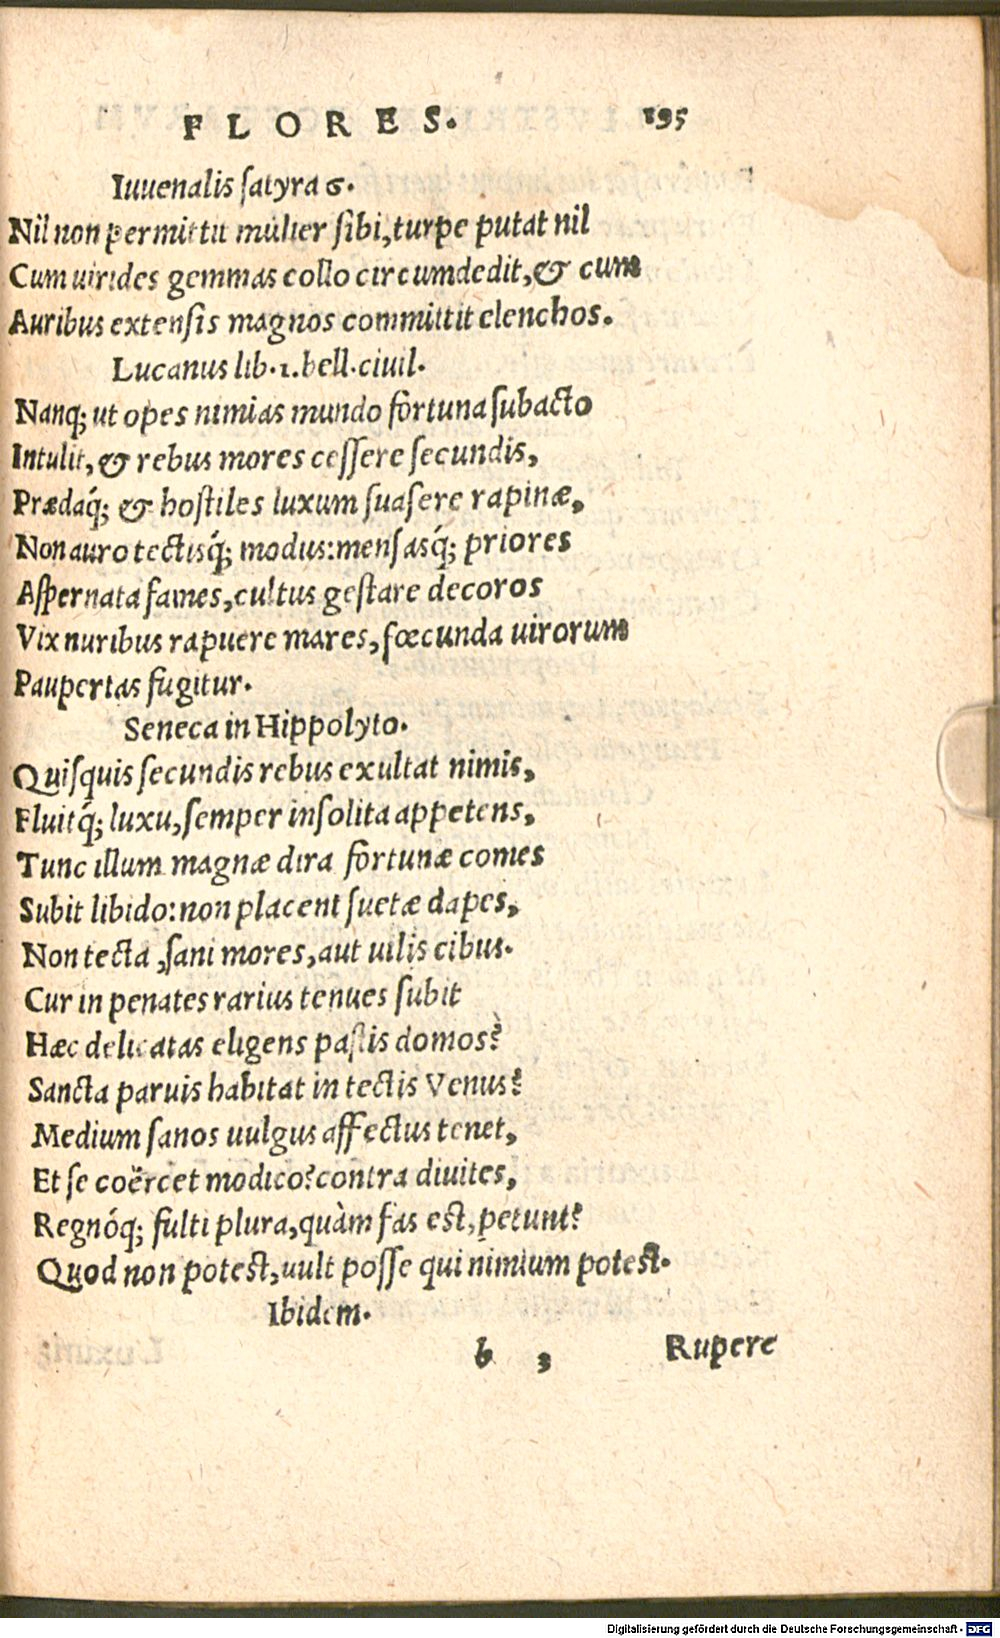 FLORES. 195
Iuuenalis satyra 6.
Nil non permittit mulier sibi, turpe putat nil
Cum uirides gemmas collo circumdedit, & cum
Auribus extensis magnos committit elenchos.
Lucanus lib. 1. bell. ciuil.
Nanq; ut opes nimias mundo fortuna subacto
Intulit, & rebus mores cessere secundis,
Prædaq́; & hostiles luxum suasere rapinæ,
Non auro tectisq́; modus: mensasq́; priores
Aspernata fames, cultus gestare decoros
Vix nuribus rapuere mares, fœcunda uirorum
Paupertas fugitur.
Seneca in Hippolyto.
Quisquis secundis rebus exultat nimis,
Fluitq́; luxu, semper insolita appetens,
Tunc illum magnæ dira fortunæ comes
Subit libido: non placent suetæ dapes,
Non tecta, sani mores, aut uilis cibus.
Cur in penates rarius tenues subit
Hæc delicatas eligens pestis domos?
Sancta paruis habitat in tectis Venus?
Medium sanos uulgus affectus tenet,
Et se coërcet modico? contra diuites,
Regnóq; fulti plura, quàm fas est, petunt?
Quod non potest, uult posse qui nimium potest.
Ibidem.
b 3 Rupere
Digitalisierung gefördert durch die Deutsche Forschungsgemeinschaft - DFG